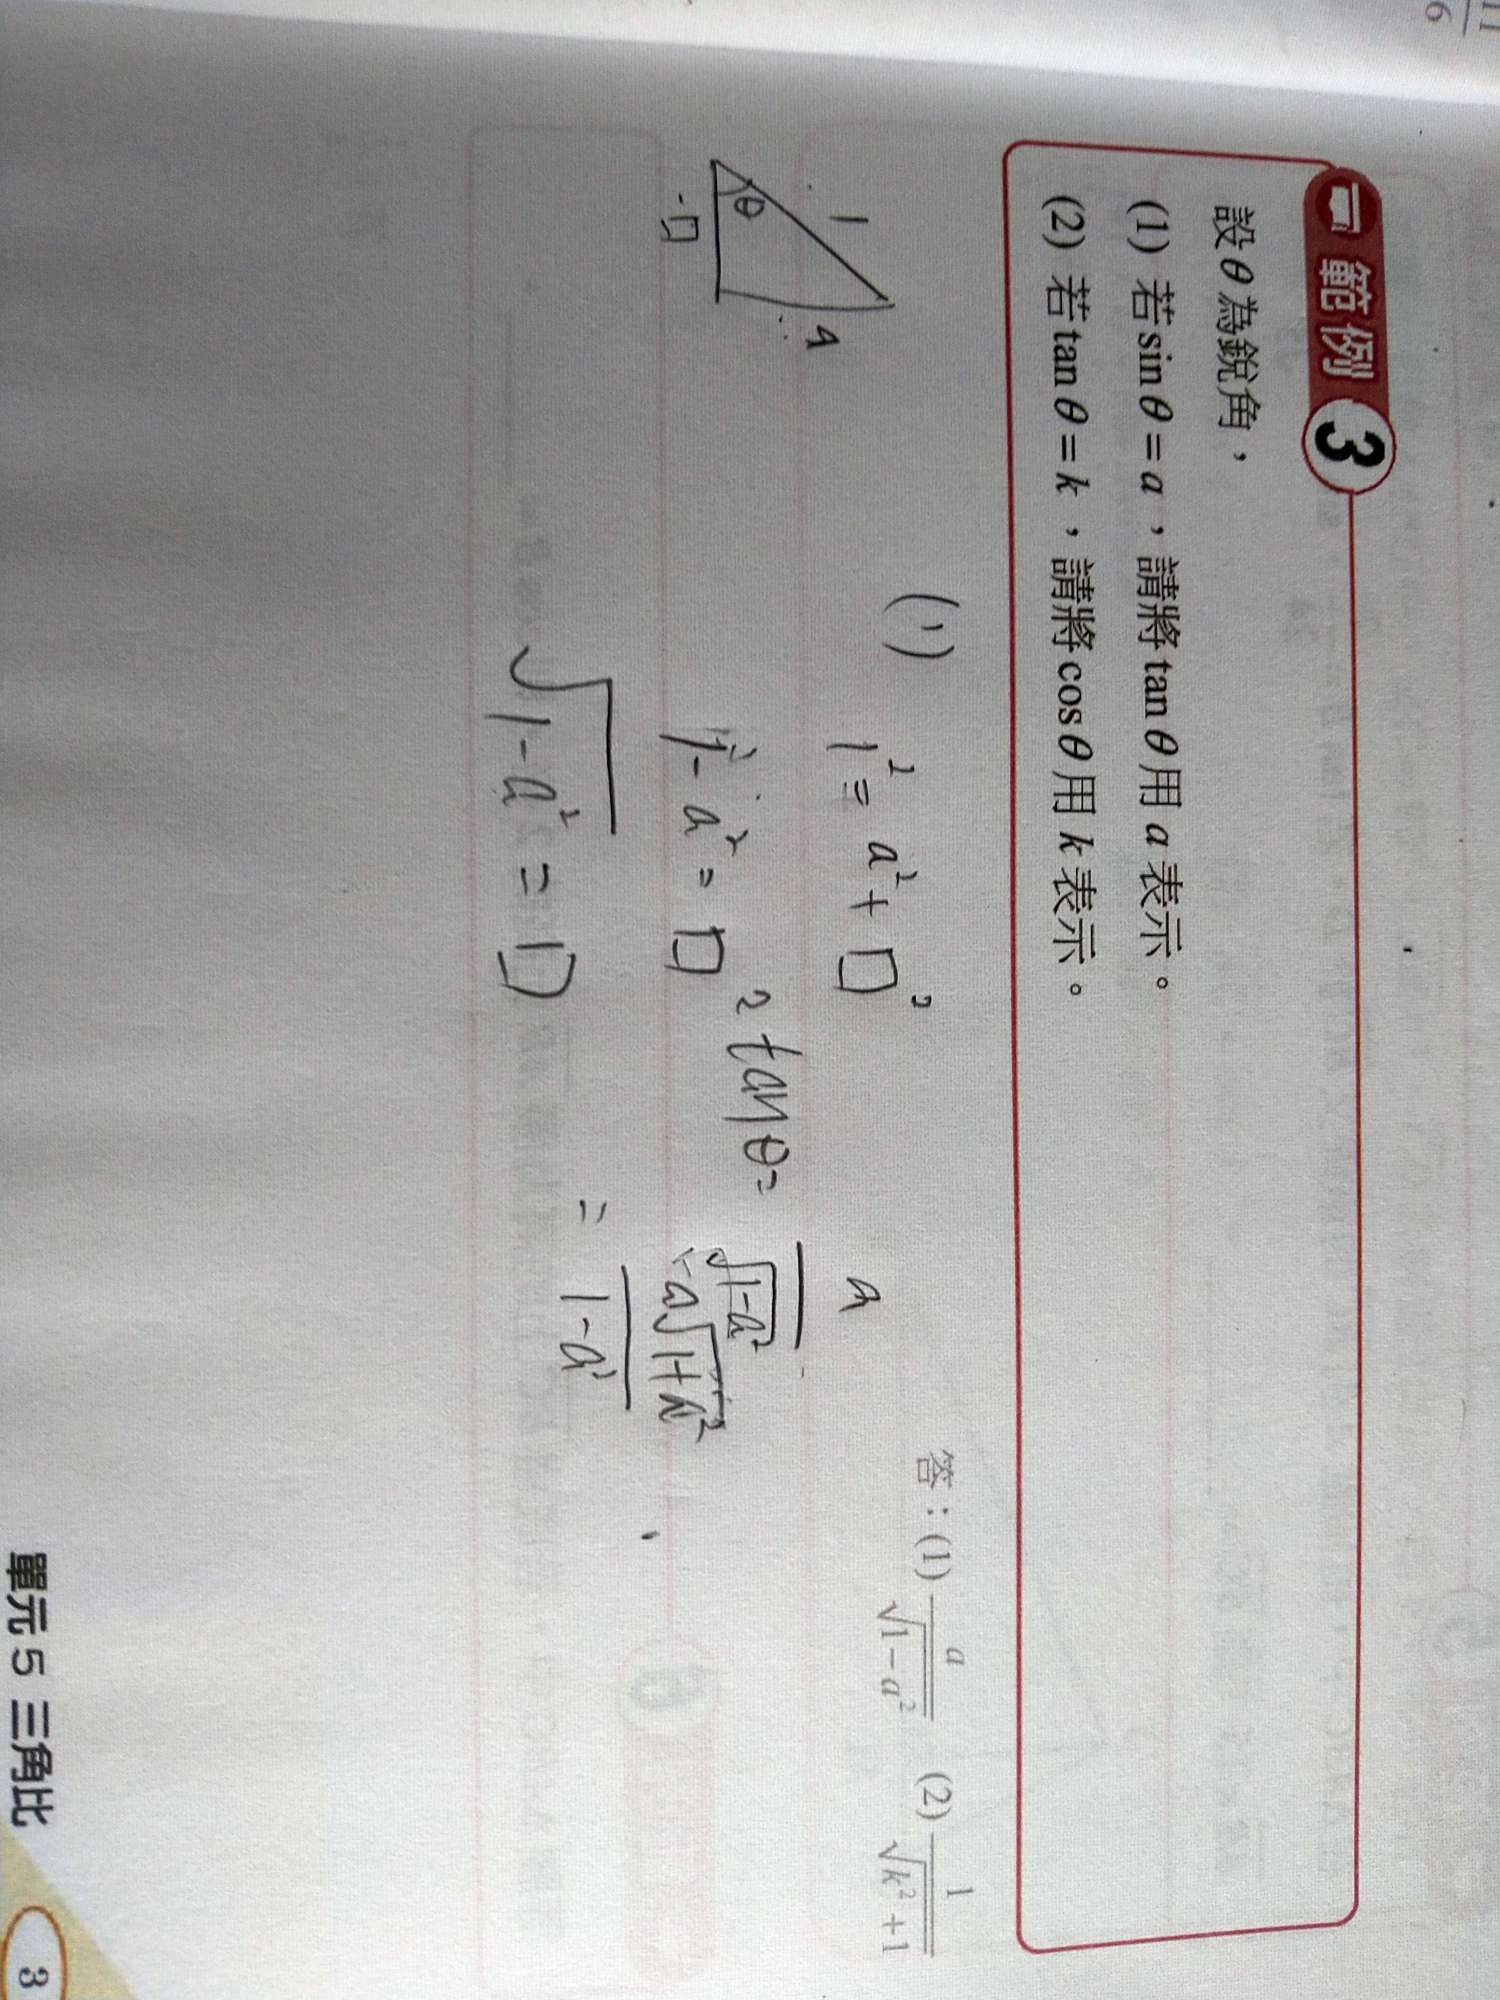 11
6
範例 3
設θ為銳角，
(1) 若 sin θ = a，請將 tan θ 用 a 表示。
(2) 若 tan θ = k，請將 cos θ 用 k 表示。
答：(1) a/√(1−a²) (2) 1/√(k²+1)
(1) 1² = a² + □²
1² - a² = □²
√(1-a²) = □
tan θ = a/√(1-a²)
= a√(1+a²)/(1-a²)
1
θ
a
□
單元 5 三角比
3